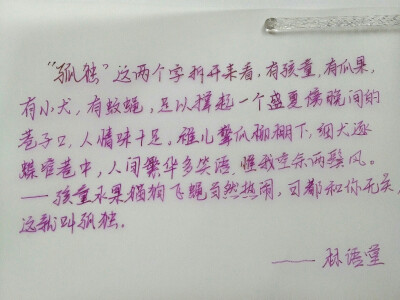 “孤独”这两个字拆开来看，有孩童，有瓜果，
有小犬，有蚊蝇，足以撑起一个盛夏傍晚间的
巷子口，人情味十足。稚儿擎瓜柳棚下，细犬逐
蝶窄巷中，人间繁华多笑语，惟我空余两鬓风。
——孩童水果猫狗飞蝇当然热闹，可都和你无关，
这就叫孤独。
——林语堂